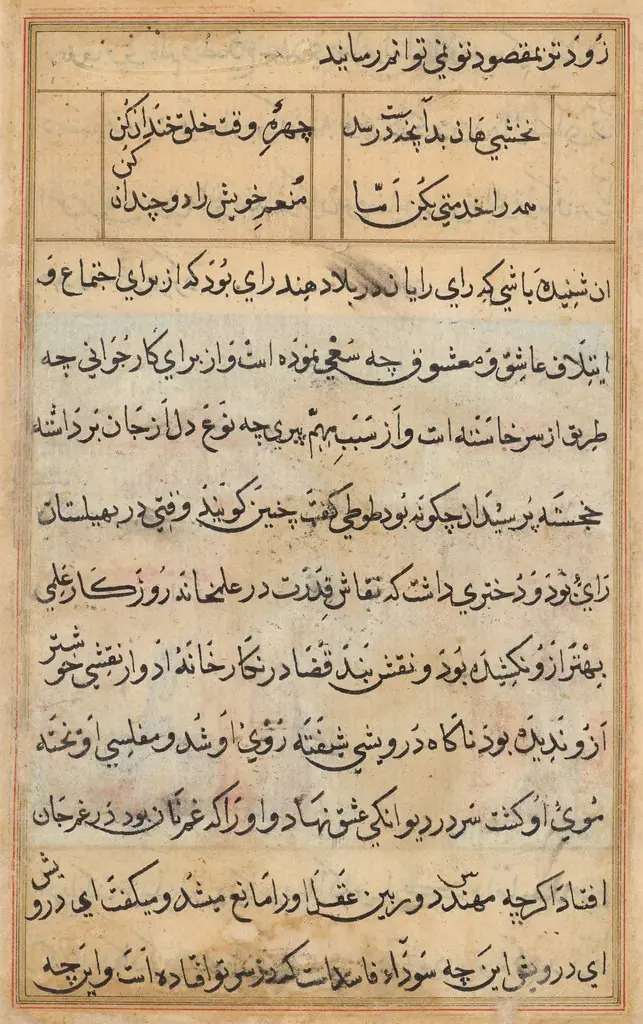 زود تر بمقصود تو نمی توانم رسانید
نخشبی هان بدانچه درست رسد چهرهٔ وقت خلق خندان کن
همه را خدمتی بکن اما منعم خویش را دو چندان کن
ان شنیده باشی که رای رایان در بلاد هند رای بود که از برای اجتماع و
ایتلاف عاشق و معشوق چه سعی نموده است و از برای کار جوانی چه
طریق از سر خاسته است و از سبب مهم پیری چه نوع دل از جان برداشته
خجسته پرسید ان چگونه بود طوطی گفت چنین گویند وقتی در بهیلستان
رای بود و دختری داشت که نقاش قدرت در علمخانه روزکار علمی
بهتر از و نکشیده بود و نقش بند قضا در نکار خانهٔ ادوار نقشی خوشتر
ازو ندیده بود ناکاه درویشی شیفته روی او شد و مفلسی اوخته
موی او کشت سر در دیوانکی عشق نهاد و او را که غم نان بود در غم جان
افتاد اکرچه مهندس دوربین عقل او را مانع میشد و میکفت ای درویش
ای درویش این چه سوداء فاسد است که در سر تو افتاده است و این چه